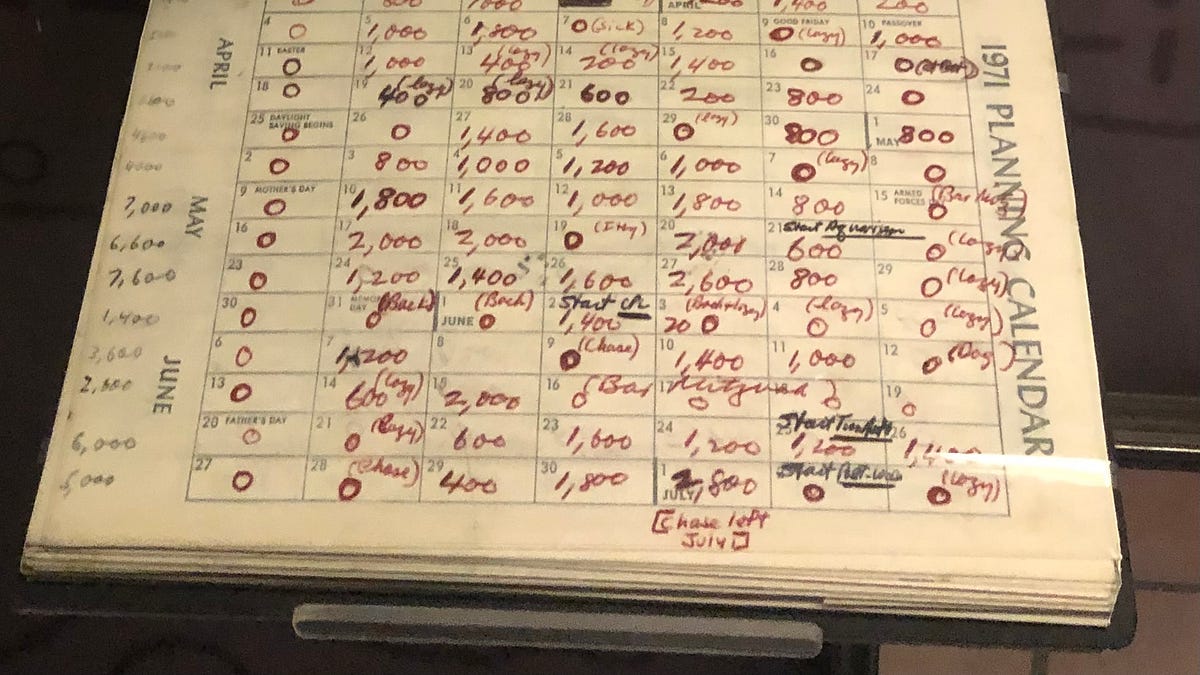 APRIL 1,400 200
4 0 5 1,000 6 1,800 7 0 (Sick) 8 1,200 9 GOOD FRIDAY 0 (lazy) 10 PASSOVER 1,000
11 EASTER 0 12 1,000 13 400 (lazy) 14 200 (lazy) 15 1,400 16 0 17 0
18 0 19 400 (lazy) 20 800 (lazy) 21 600 22 200 23 800 24 0
25 DAYLIGHT SAVING BEGINS 0 26 0 27 1,400 28 1,600 29 0 (lazy) 30 800 1 MAY 800
2 0 3 800 4 1,000 5 1,200 6 1,000 7 0 (lazy) 8 0
9 MOTHER'S DAY 0 10 1,800 11 1,600 12 1,000 13 1,800 14 800 15 ARMED FORCES 0
16 0 17 2,000 18 2,000 19 0 20 21 Start Aquarium 600 0 (lazy)
23 0 24 1,200 25 1,400 26 1,600 27 2,600 28 800 29 0 (lazy)
30 0 31 DAY 0 (Bach) 1 JUNE 0 (Bach) 2 Start 1,400 3 20 0 4 0 (lazy) 5 0 (lazy)
6 0 7 1,200 8 9 0 (Chase) 10 1,400 11 1,000 12 0
13 0 14 600 (lazy) 15 2,000 16 0 (Bar 17 Mitzvah 0 ) 0 19 0
20 FATHER'S DAY 0 21 0 (lazy) 22 600 23 1,600 24 1,200 25 Start 1,200 26 1,400
27 0 28 0 (Chase) 29 400 30 1,800 1 JULY 2,800 Start 0 0 (lazy)
[Chase left
July ]
APRIL
MAY
JUNE
4000
7,000
6,600
7,600
1,400
3,600
6,000
5,000
1971 PLANNING CALENDAR